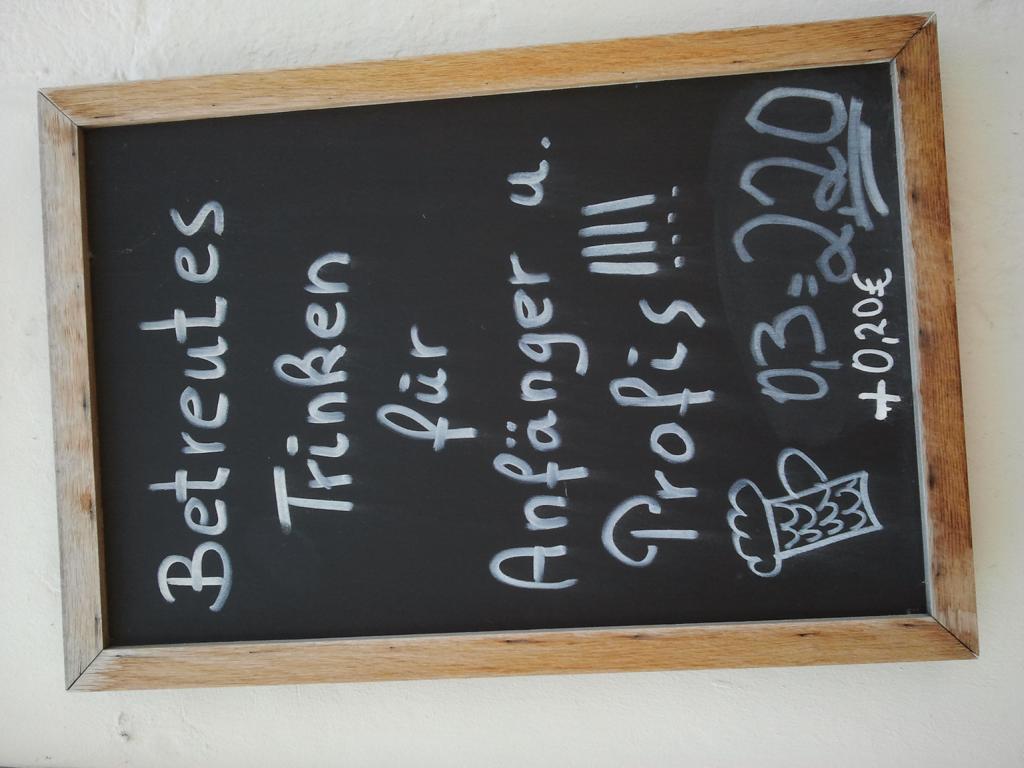 Betreutes
Trinken
für
Anfänger u.
Profis !!!!
0,3 = 2,20
+ 0,20€